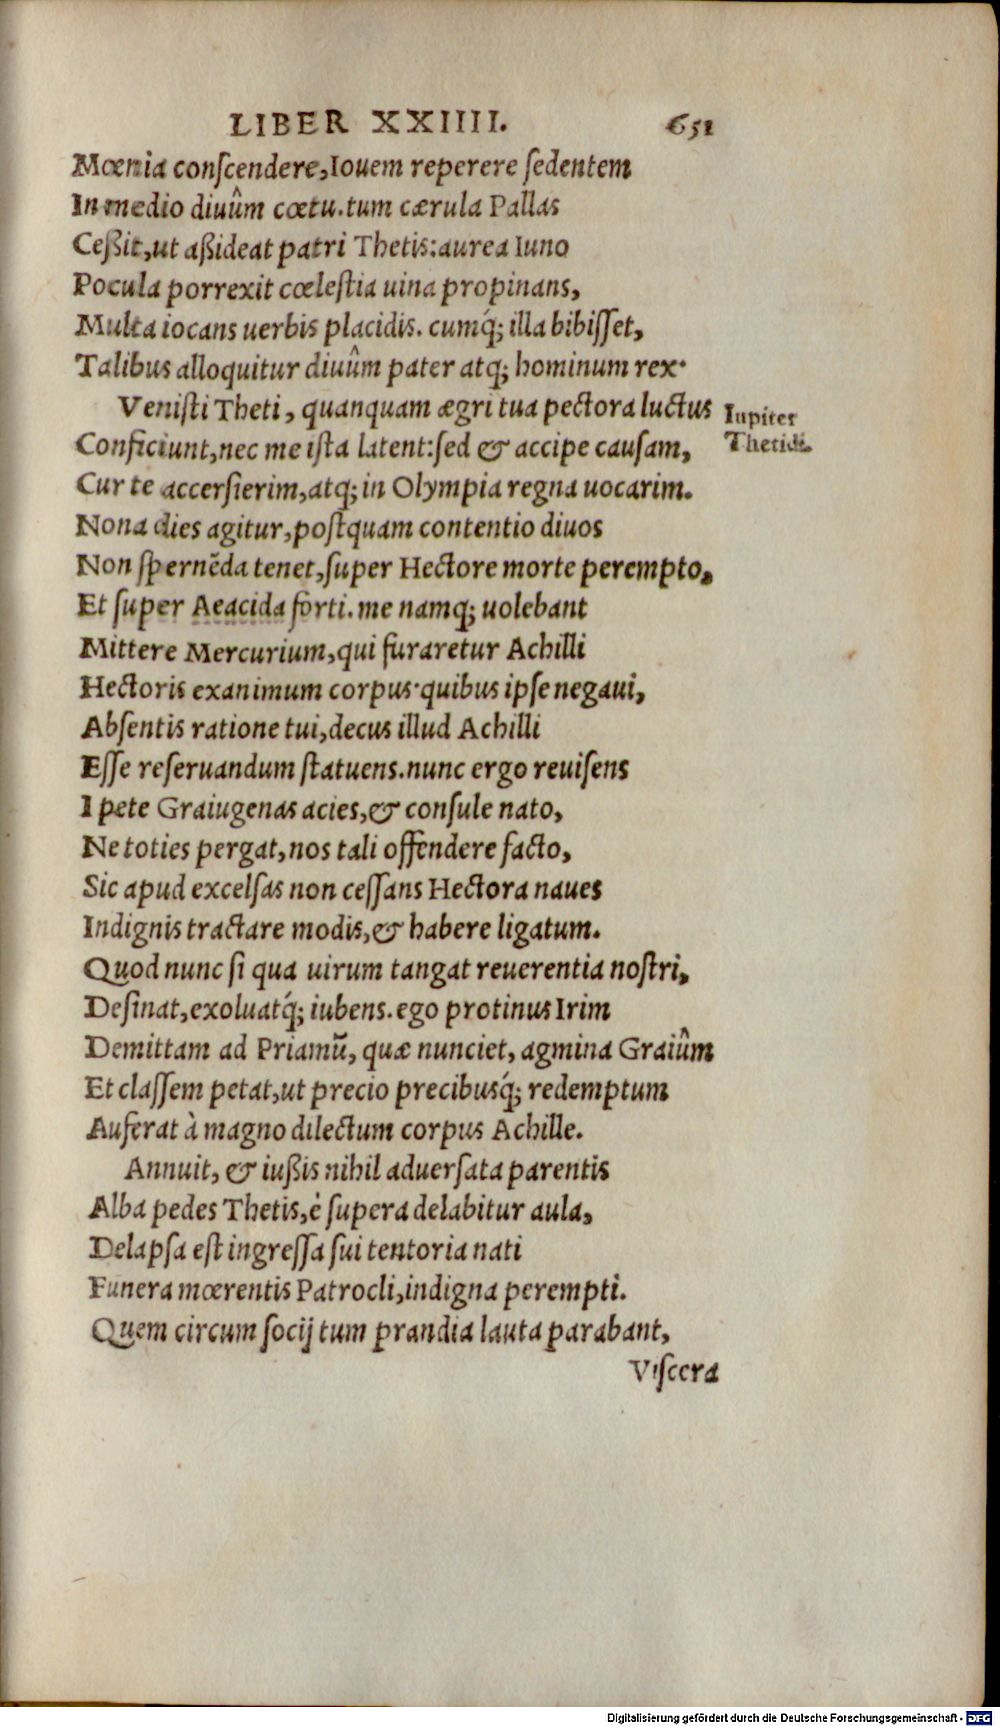 LIBER XXIIII. 651
Mœnia conſcendere, Iouem reperere ſedentem
In medio diuûm cœtu. tum cærula Pallas
Ceßit, ut aßideat patri Thetis: aurea Iuno
Pocula porrexit cœleſtia uina propinans,
Multa iocans uerbis placidis. cumq́; illa bibiſſet,
Talibus alloquitur diuûm pater atq; hominum rex.
Veniſti Theti, quanquam ægri tua pectora luctus
Iupiter
Conficiunt, nec me iſta latent: ſed & accipe cauſam,
Thetidi.
Cur te accerſierim, atq; in Olympia regna uocarim.
Nona dies agitur, poſtquam contentio diuos
Non ſpernẽda tenet, ſuper Hectore morte perempto,
Et ſuper Aeacida forti. me namq; uolebant
Mittere Mercurium, qui furaretur Achilli
Hectoris exanimum corpus. quibus ipſe negaui,
Abſentis ratione tui, decus illud Achilli
Eſſe reſeruandum ſtatuens. nunc ergo reuiſens
I pete Graiugenas acies, & conſule nato,
Ne toties pergat, nos tali offendere facto,
Sic apud excelſas non ceſſans Hectora naues
Indignis tractare modis, & habere ligatum.
Quod nunc ſi qua uirum tangat reuerentia noſtri,
Deſinat, exoluatq́; iubens. ego protinus Irim
Demittam ad Priamũ, quæ nunciet, agmina Graiûm
Et claſſem petat, ut precio precibusq́; redemptum
Auferat à magno dilectum corpus Achille.
Annuit, & iußis nihil aduerſata parentis
Alba pedes Thetis, è ſupera delabitur aula,
Delapſa eſt ingreſſa ſui tentoria nati
Funera mœrentis Patrocli, indigna perempti.
Quem circum ſocij tum prandia lauta parabant,
Viſcera
Digitalisierung gefördert durch die Deutsche Forschungsgemeinschaft - DFG